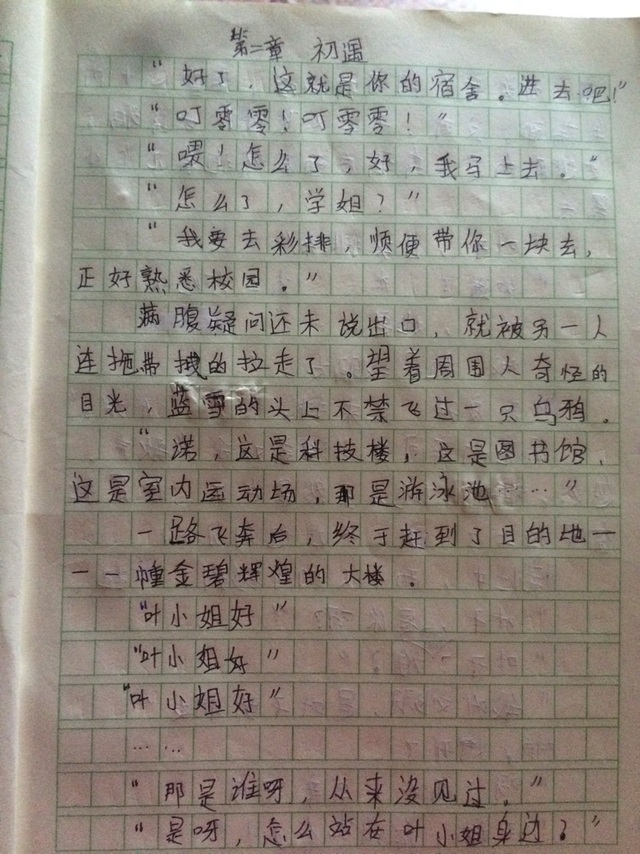 第二章 初遇
“好了，这就是你的宿舍。进去吧！”
“叮零零！叮零零！”
“喂！怎么了，好，我马上去。”
“怎么了，学姐？”
“我要去彩排，顺便带你一块去，
正好熟悉校园。”
满腹疑问还未说出口，就被另一人
连拖带拽的拉走了。望着周围人奇怪的
目光，蓝雪的头上不禁飞过一只乌鸦。
“诺，这是科技楼，这是图书馆，
这是室内运动场，那是游泳池……”
一路飞奔后，终于赶到了目的地—
—一幢金碧辉煌的大楼。
“叶小姐好”
“叶小姐好”
“叶小姐好”
……
“那是谁呀，从来没见过。”
“是呀，怎么站在叶小姐身边？”